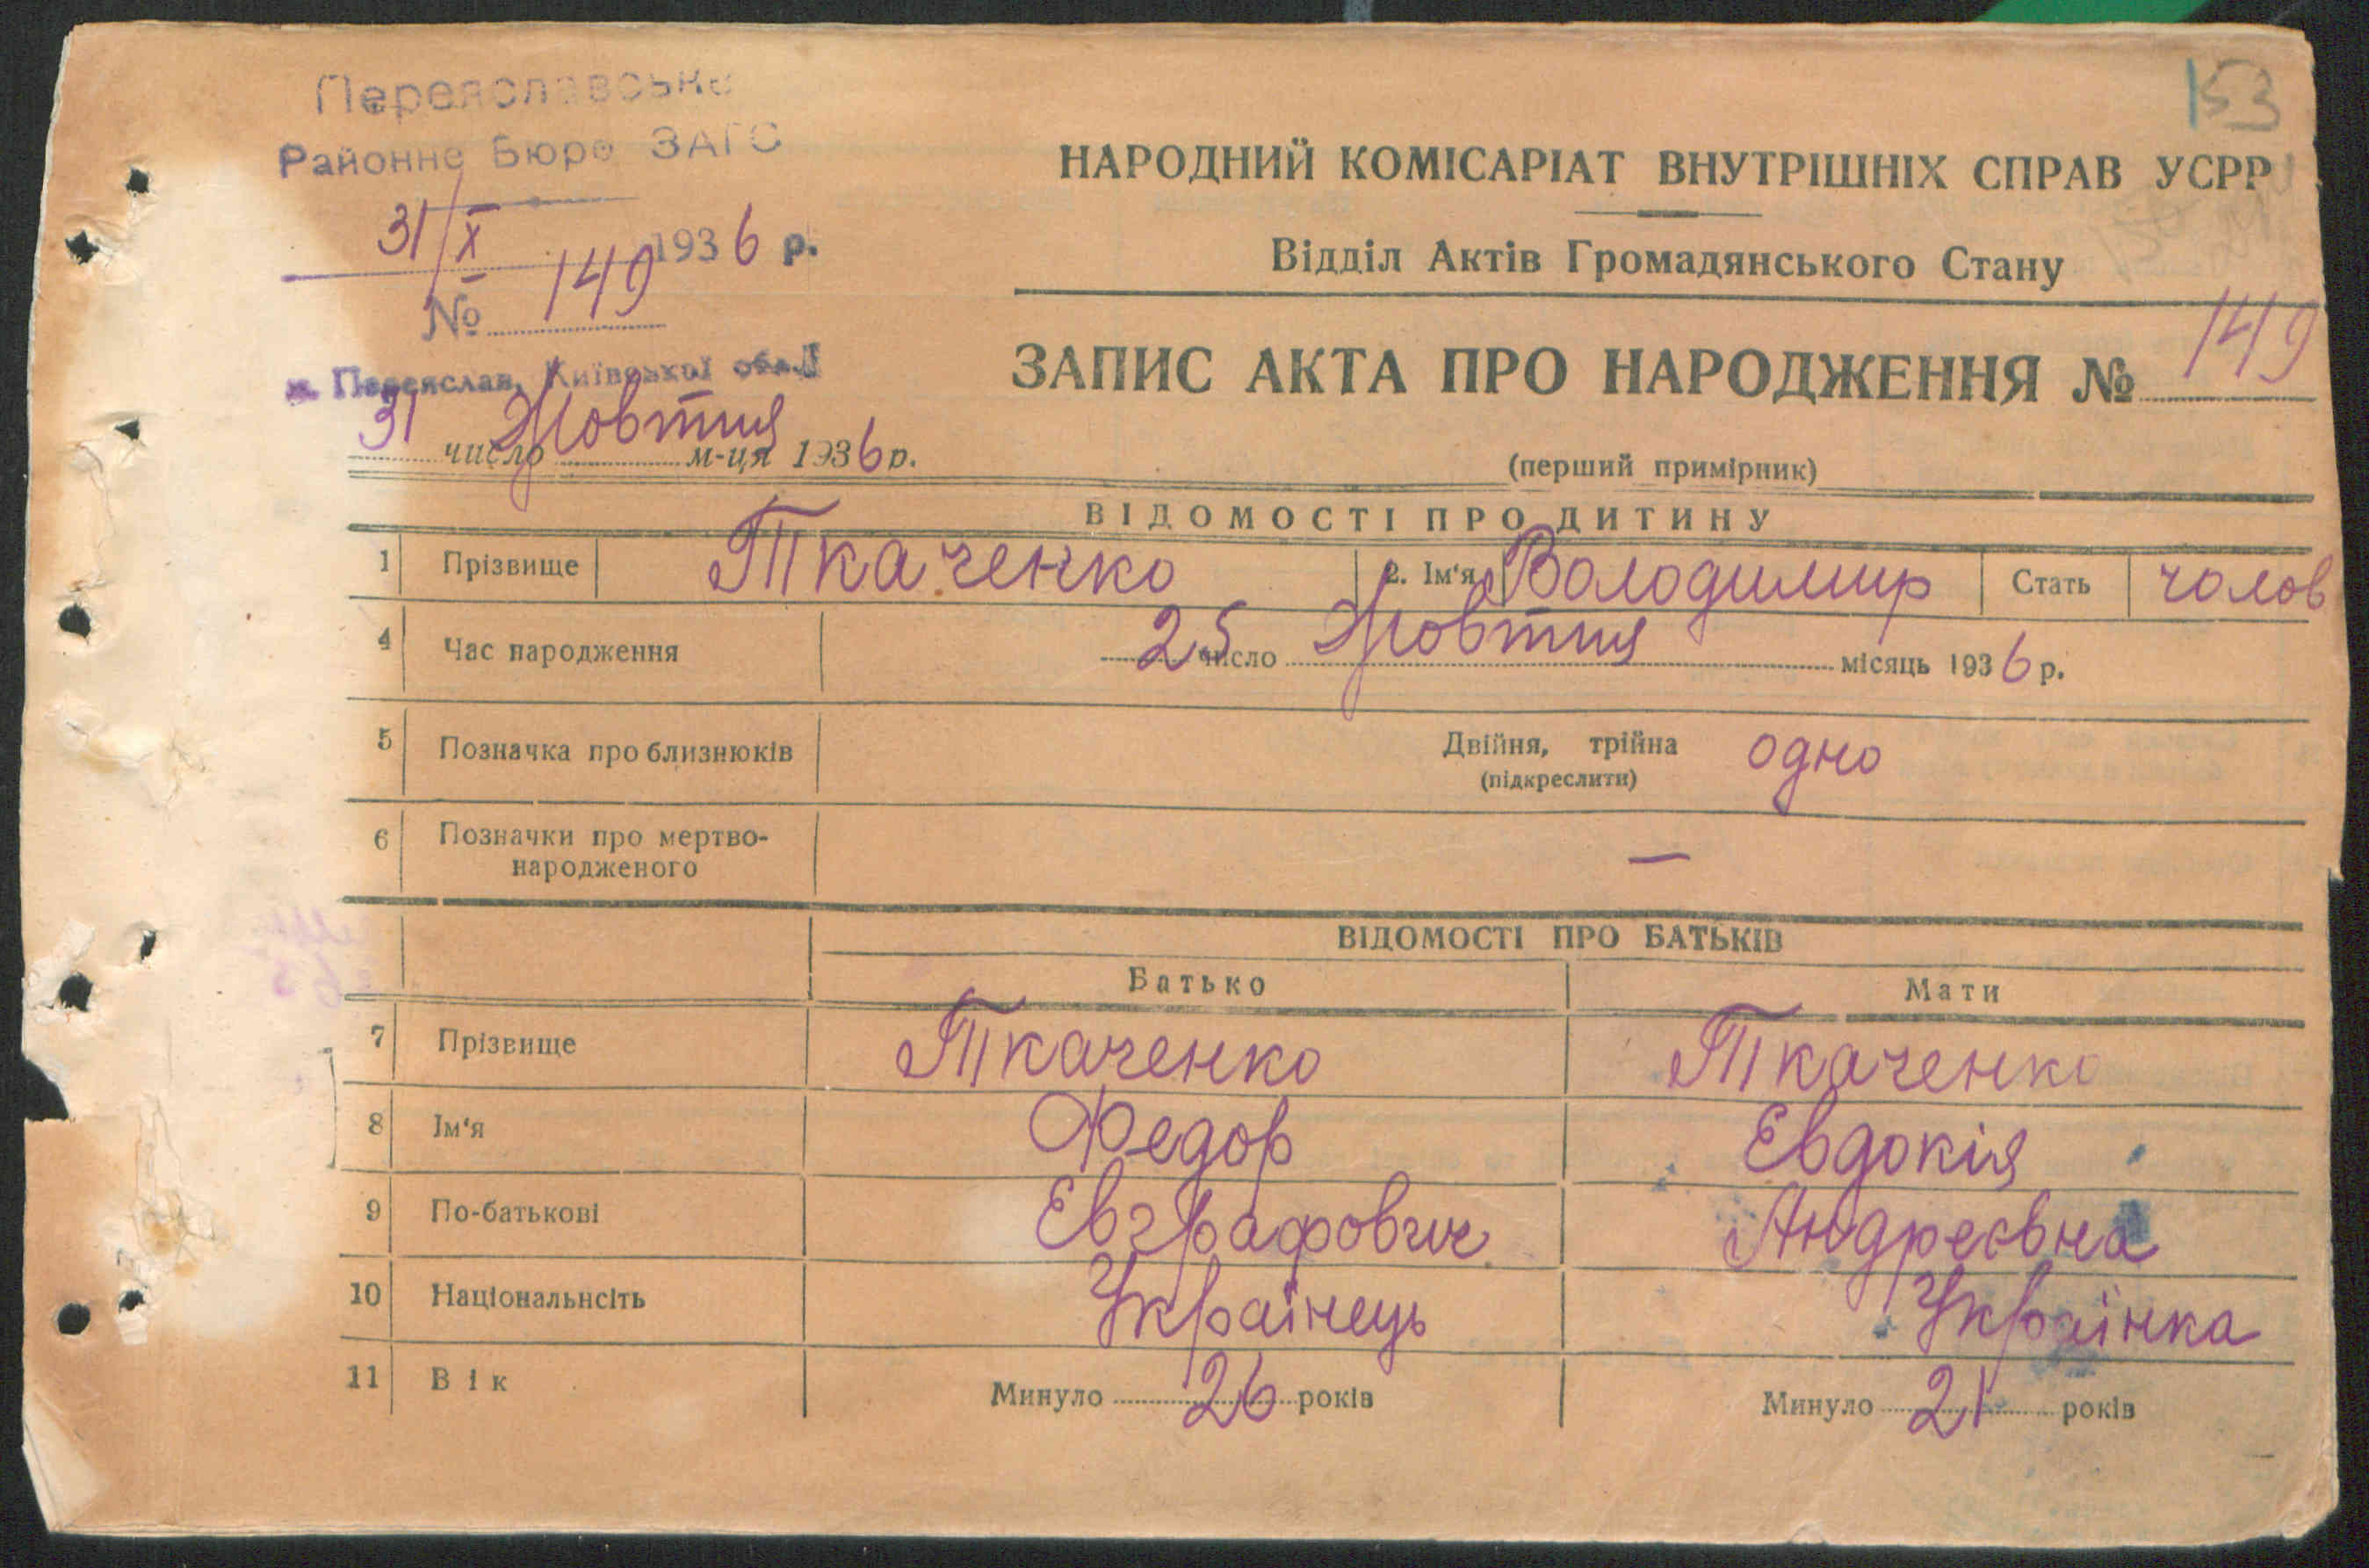 Переяславське
Районне Бюро ЗАГС
31/X 1936 р.
№ 149
м. Переяслав, Київської обл.
31 число Жовтня м-ця 1936 р.
153
НАРОДНИЙ КОМІСАРІАТ ВНУТРІШНІХ СПРАВ УСРР
Відділ Актів Громадянського Стану
ЗАПИС АКТА ПРО НАРОДЖЕННЯ № 149
(перший примірник)
ВІДОМОСТІ ПРО ДИТИНУ
1 Прізвище Ткаченко 2. Ім'я Володимир Стать чолов
4 Час народження 25 число Жовтня місяць 1936 р.
5 Позначка про близнюків Двійня, трійна одно
(підкреслити)
6 Позначки про мертво-
народженого —
ВІДОМОСТІ ПРО БАТЬКІВ
Батько Мати
7 Прізвище Ткаченко Ткаченко
8 Ім'я Федор Евдокія
9 По-батькові Евграфович Андреєвна
10 Національнсіть Українець Українка
11 Вік Минуло 26 років Минуло 21 років